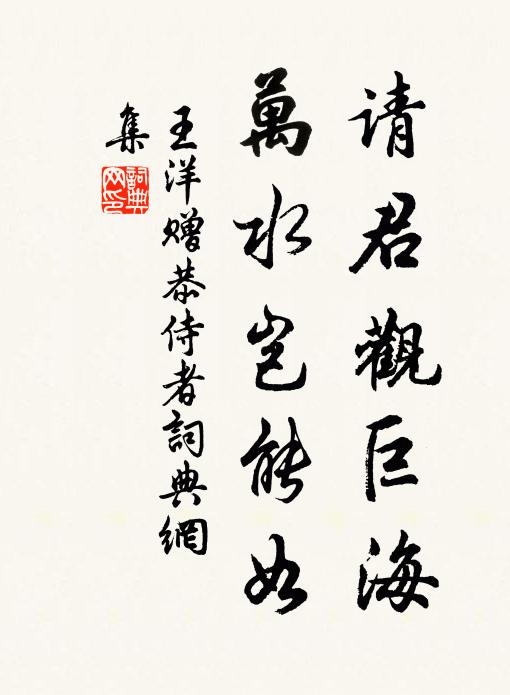 请君觀巨海
萬水岂能如
王洋赠恭侍者詞典網
集
詞典
网印